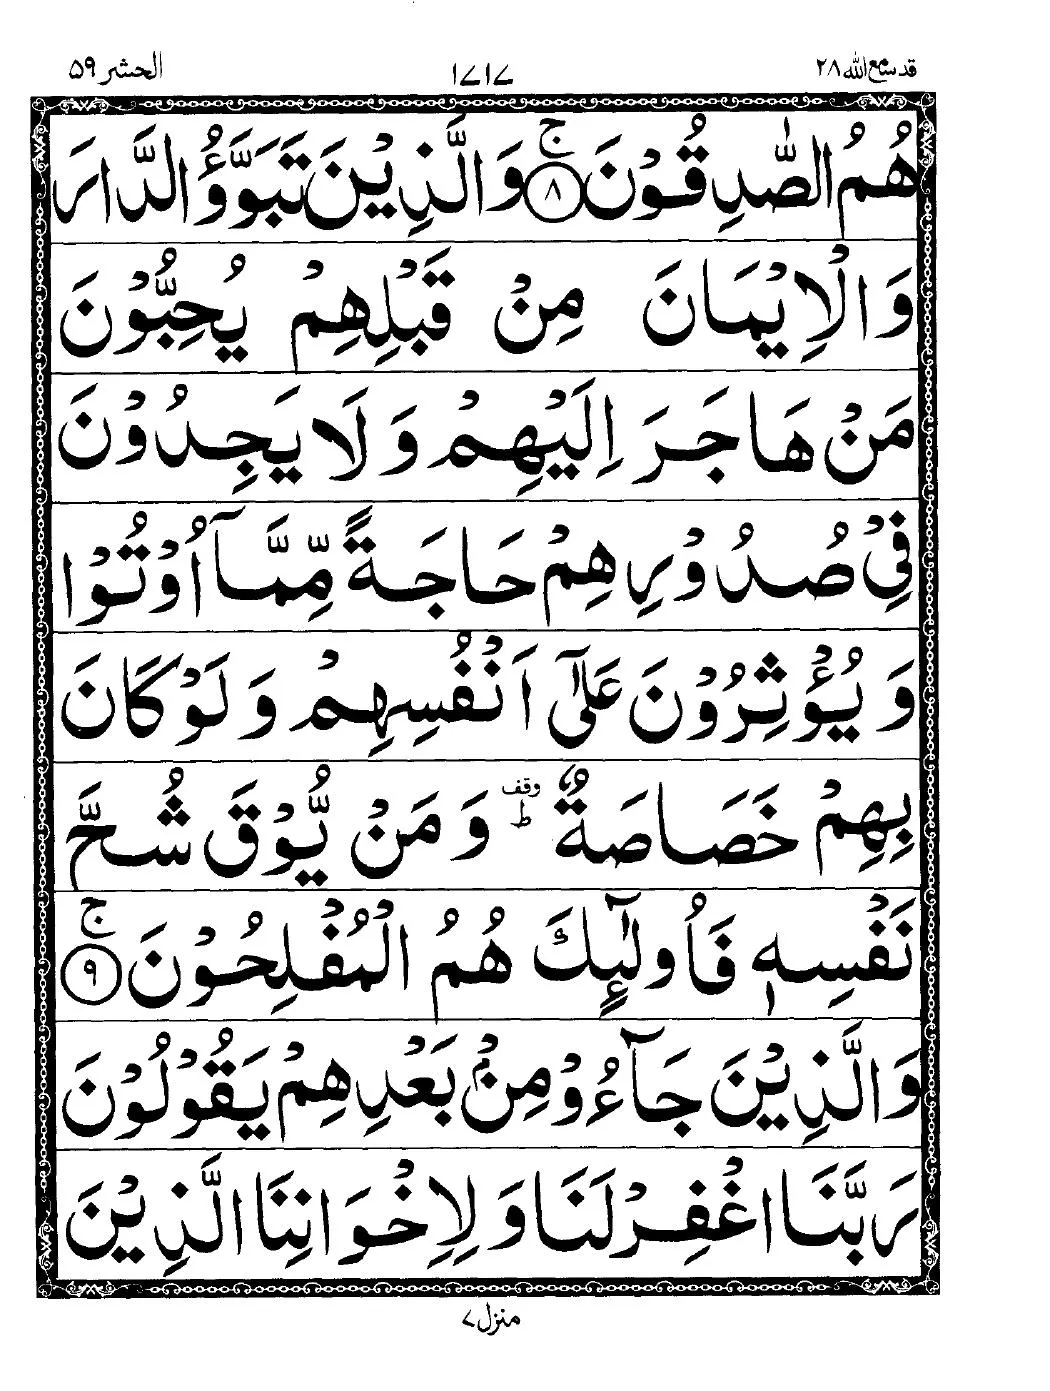 قد سمع الله ۲۸
۱۷۱۷
الحشر ۵۹
هُمُ الصّٰدِقُوْنَ ۚ‏﴿۸﴾ وَالَّذِيْنَ تَبَوَّؤُ الدَّارَ
وَالْاِيْمَانَ مِنْ قَبْلِهِمْ يُحِبُّوْنَ
مَنْ هَاجَرَ اِلَيْهِمْ وَلَا يَجِدُوْنَ
فِيْ صُدُوْرِهِمْ حَاجَةً مِّمَّاۤ اُوْتُوْا
وَيُؤْثِرُوْنَ عَلٰۤى اَنْفُسِهِمْ وَلَوْ كَانَ
بِهِمْ خَصَاصَةٌ ؕ وقف وَمَنْ يُّوْقَ شُحَّ
نَفْسِهٖ فَاُولٰٓئِكَ هُمُ الْمُفْلِحُوْنَ ۚ‏﴿۹﴾
وَالَّذِيْنَ جَآءُوْ مِنْۢ بَعْدِهِمْ يَقُوْلُوْنَ
رَبَّنَا اغْفِرْ لَنَا وَلِاِخْوَانِنَا الَّذِيْنَ
منزل ۷